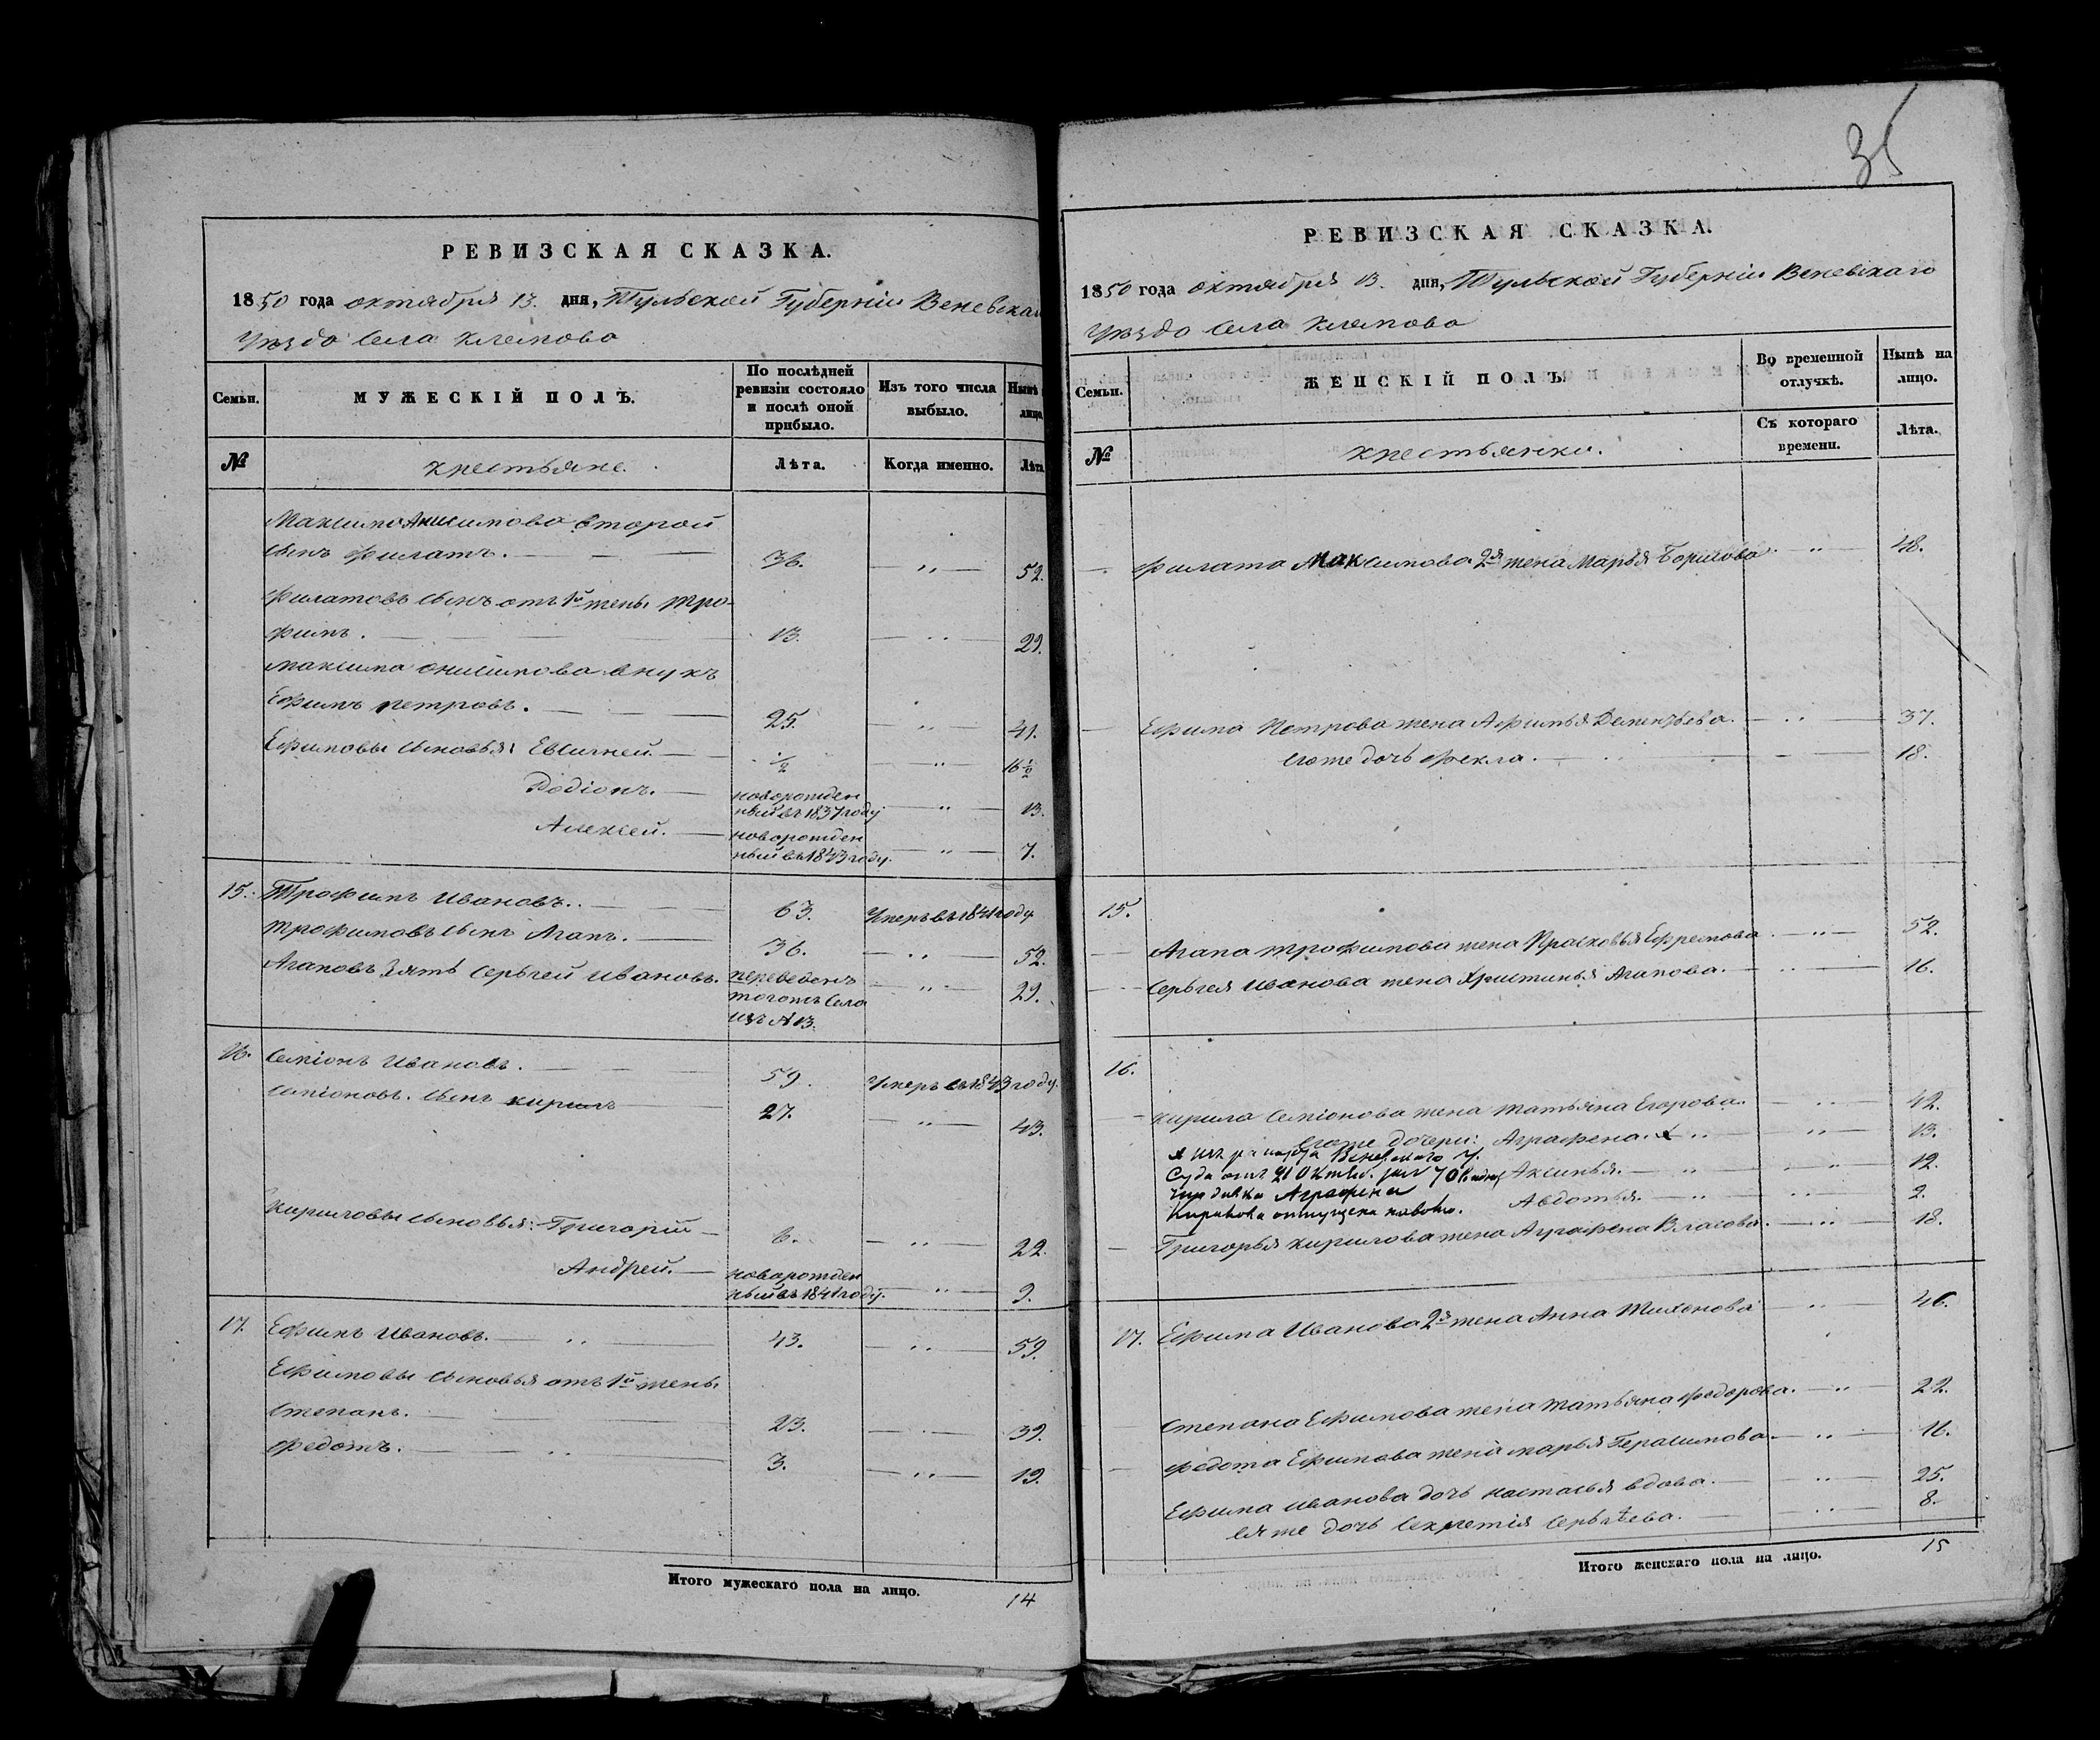 РЕВИЗСКАЯ СКАЗКА.
1850 года октября 13. дня, Тульской Губерніи Веневскаго
Уѣзда Села Клемово
Семьи.
МУЖЕСКІЙ ПОЛЪ.
По послѣдней ревизіи состояло и послѣ оной прибыло.
Изъ того числа выбыло.
Нынѣ лицо
№
крестьяне.
Лѣта.
Когда именно.
Лѣта
Максима Анисимова второй
сынъ Филатъ. 36. „ 52.
Филатовъ сынъ отъ 1й жены Тро-
фимъ. 13. „ 29.
Максима Онисимова внукъ
Ефимъ Петровъ. 25. „ 41.
Ефимовы сыновья: Евсигней. ½ „ 16½
Родіонъ. новорожден „ 13.
ный въ 1837 году
Алексей. новорожден „ 7.
ный въ 1843 году.
15. Трофимъ Ивановъ. 63. Умеръ въ 1841 году
Трофимовъ сынъ Агапъ. 36. „ 52.
Агаповъ зять Сергей Ивановъ. переведенъ „ 29.
тогожъ Села
изъ № 13.
16. Семіонъ Ивановъ. 59. Умеръ въ 1843 году.
Семіоновъ. сынъ Кирилъ 27. „ 43.
Кириловы сыновья: Григорій 6. „ 22.
Андрей. новорожден „ 9.
ный въ 1841 году.
17. Ефимъ Ивановъ. 43. „ 59.
Ефимовы сыновья отъ 1й жены
Степанъ. 23. 39.
Федотъ. 3. „ 19.
Итого мужескаго пола на лицо. 14
35
РЕВИЗСКАЯ СКАЗКА.
1850 года октября 13. дня, Тульской Губерніи Веневскаго
Уѣзда Села Клемово
Семьи.
ЖЕНСКІЙ ПОЛЪ.
Во временной отлучкѣ.
Нынѣ на лицо.
№
крестьянки.
Съ котораго времени.
Лѣта.
Филата Максимова 2я жена Марья Борисова „ 48.
Ефима Петрова жена Афимья Дементьева. „ 37.
его же дочь Фекла. 18.
15.
Агапа Трофимова жена Прасковья Ефремова „ 52.
Сергея Иванова жена Христинья Агапова. „ 16.
16.
Кирила Семіонова жена Татьяна Егорова. „ 42.
его же дочери: Аграфена. х „ 13.
х изъ рапорта Веневскаго У.
Суда отъ Аксинья. „ 12.
Аграфена
Авдотья. „ 2.
Кирилова отпущена на волю.
Григорья Кирилова жена Аграфена Власова. „ 18.
17. Ефима Иванова 2я жена Анна Тихонова „ 46.
Степана Ефимова жена Татьяна Федорова. „ 22.
Федота Ефимова жена Марья Герасимова. „ 16.
Ефима Иванова дочь Настасья вдова. „ 25.
ея же дочь Секретія Сергѣева. „ 8.
Итого женскаго пола на лицо. 15